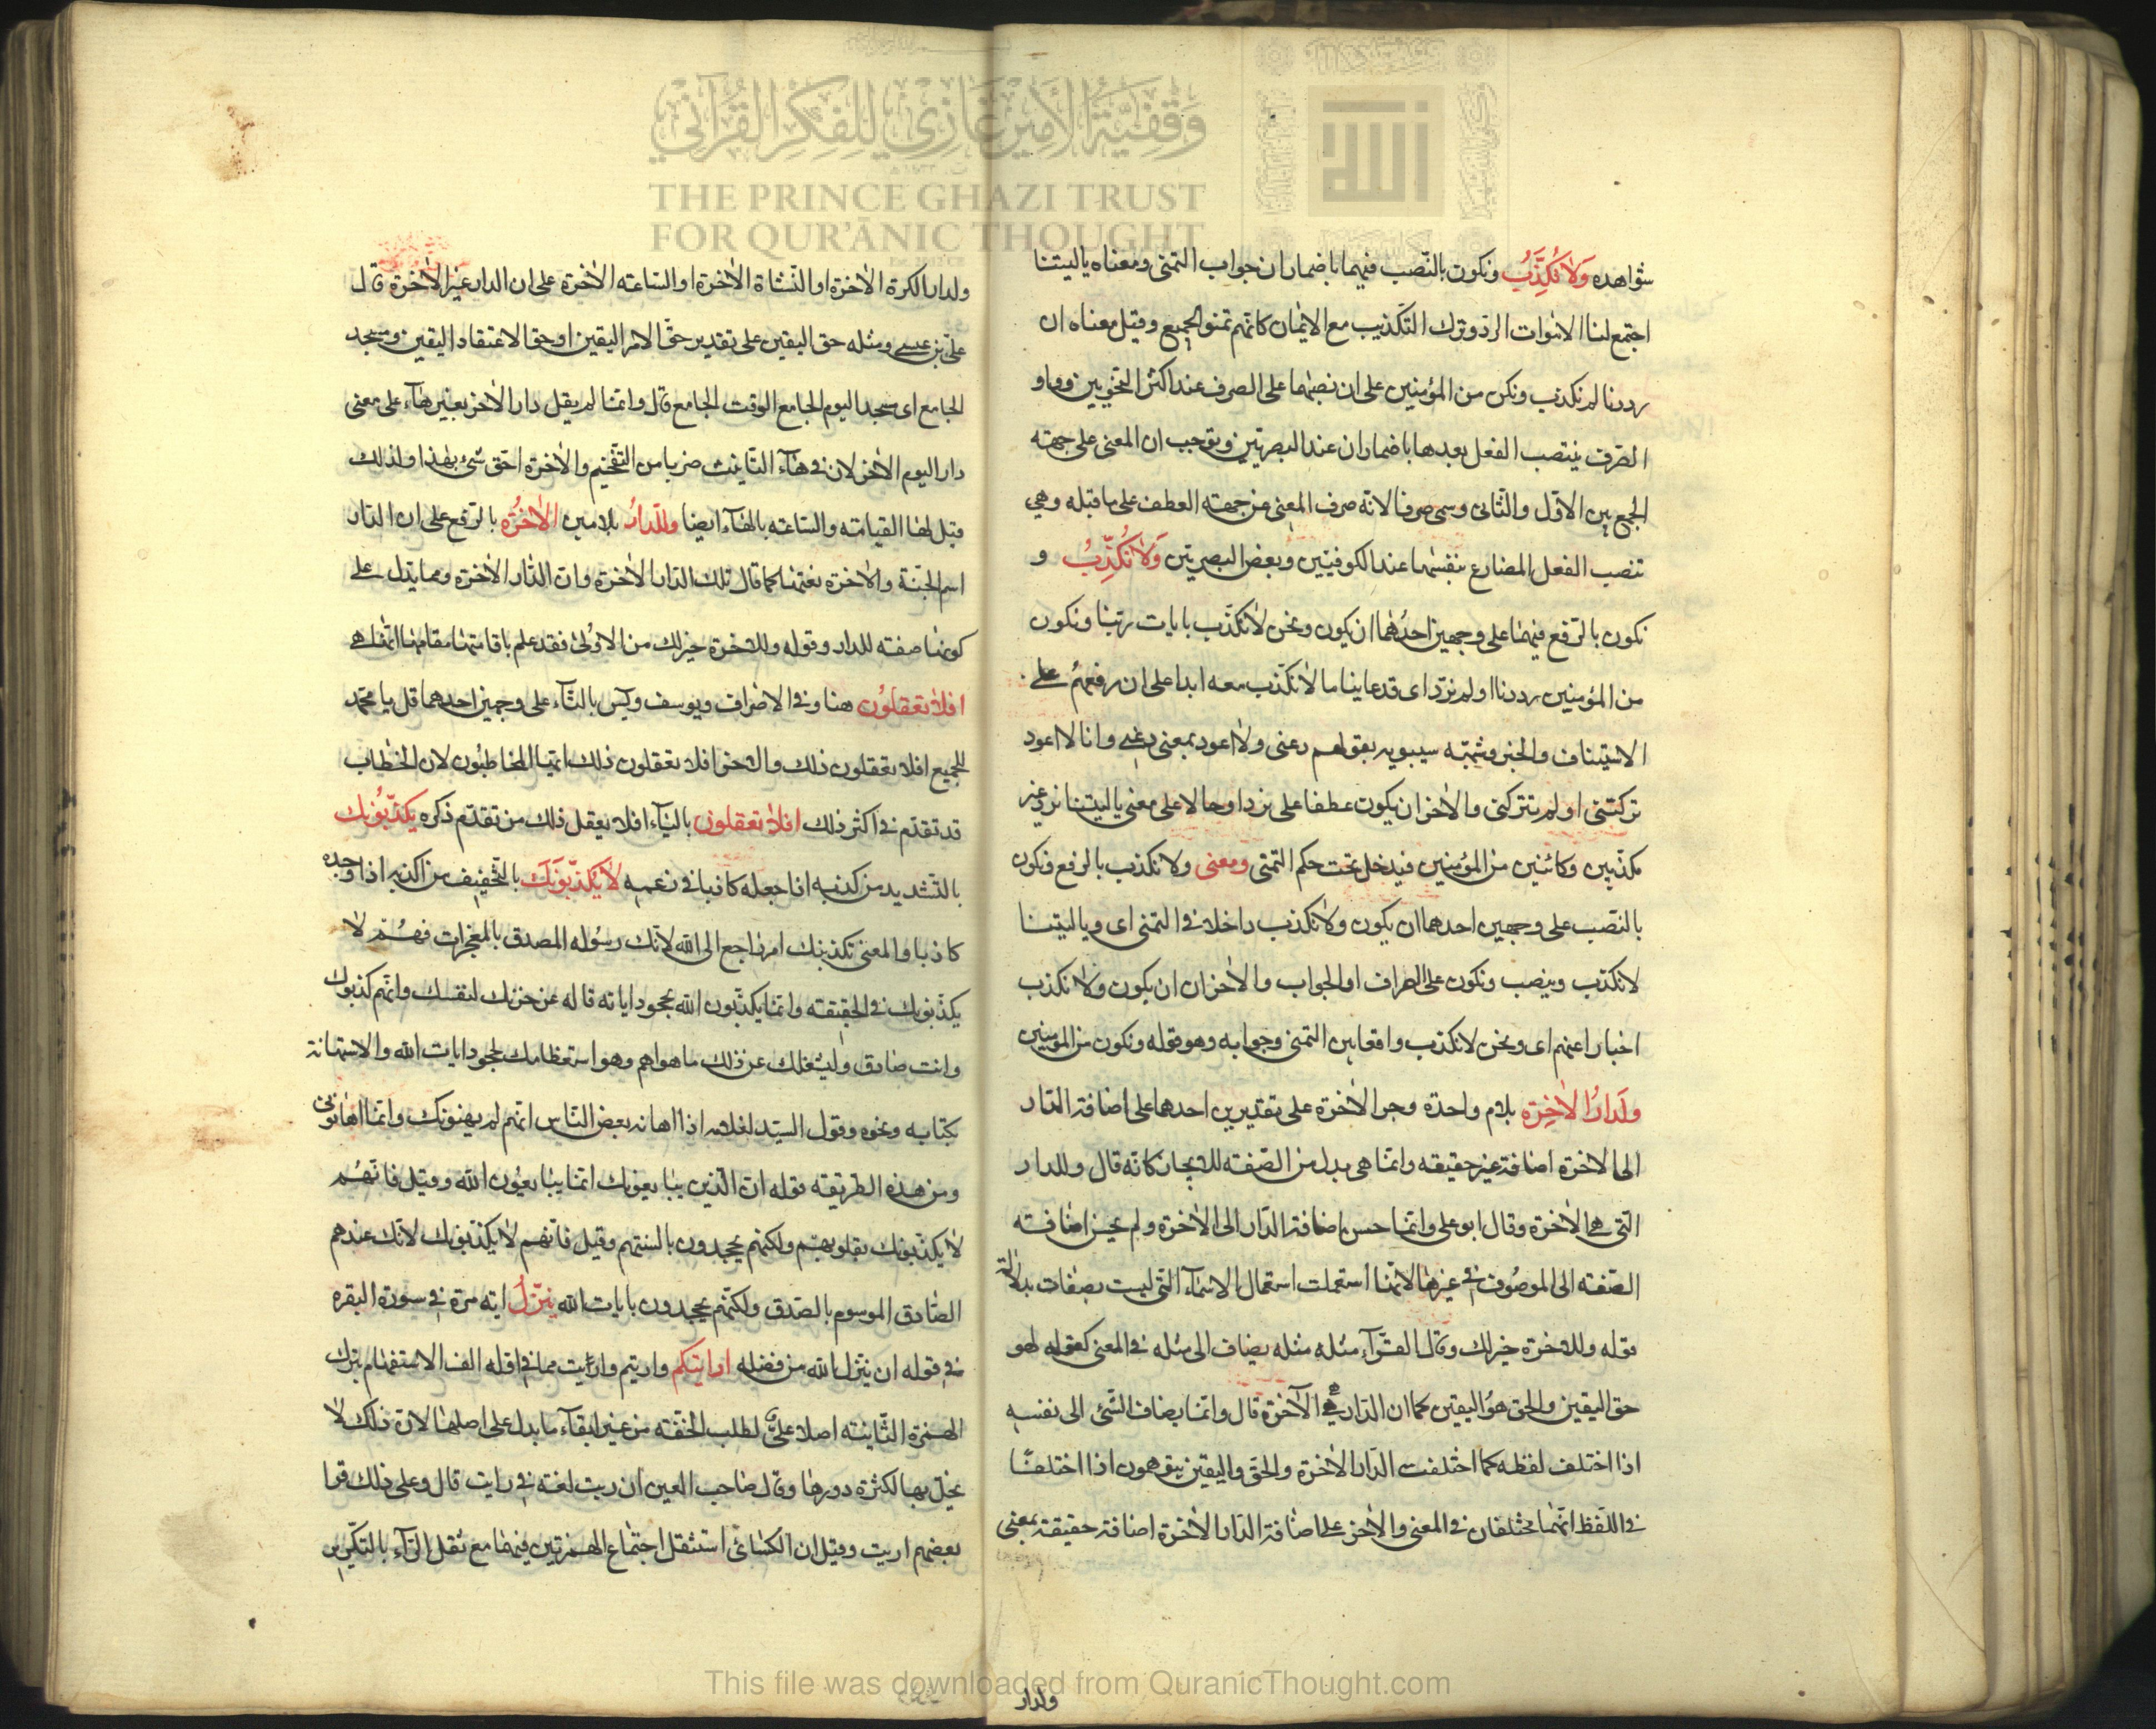 وَقْفِيَّةُ الأَمِيْر غَازِي لِلْفِكْرِ القُرْآنِي
THE PRINCE GHAZI TRUST
FOR QUR'ĀNIC THOUGHT
شواهده وَلاٰ نُكَذِّبُ ونكون بالنّصب فيهما باضمار ان جواب التمنى ومعناه ياليتنا
اجتمع لنا الامٰوات الردّ وترك التكذيب مع الايمان كانّهم تمنوا الجميع وقيل معناه ان
رددنا لم نكذب ونكن من المؤمنين على ان نصبهما على الصرف عند اكثر النحويين وواو
الصّرف ينتصب الفعل بعدها باضمار ان عند البصريّين ويوجب ان المعنى على جهته
الجمع بين الاوّل والثّانى وسمى صرفا لانّه صرف المعنى من جهته العطف على ما قبله وهي
تنصب الفعل المضارع بنفسها عند الكوفيّين وبعض البصريّين وَلاٰ نُكَذِّبُ و
نكون بالرّفع فيهما على وجهين احدُهُما ان يكون ونحن لاٰ نكذّب بايات ربّنا ونكون
من المؤمنين رددنا او لم نردّ اى قد عاينا ما لاٰ نكذّب معه ابدا على ان رفعهمُ على
الاستيناف والخبر وشبّهه سيبويه بقولهم دعنى ولاٰ اعود بمعنى دعنى وانا لا اعود
تركتنى او لم تتركنى والاٰخر ان يكون عطفا على نردّ او حالا على معنى ياليتنا نردّ غير
مكذّبين وكائنين من المؤمنين فيدخل تحت حكم التمنى ومعنى ولا نكذب بالرفع ونكون
بالنصب على وجهين احدهما ان يكون ولاٰ نكذب داخلا فى التمنى اى وياليتنا
لانكذّب وينصب ونكون على الصراف او الجواب والاٰخر ان ان يكون ولاٰ نكذب
اخبارا عنهم اى ونحن لا نكذب واقعا بين التمنى وجوابه وهو قوله ونكون من المؤمنين
ولَدَارُ الاٰخِرَة بلام واحدة وجر الاٰخرة على تقديرين احدهما على اضافة الدّار
الى الاٰخرة اضافة غير حقيقه وانّما هى بدل من الصّفته للايجاز كانّه قال وللدار
التى هى الاٰخرة وقال ابو على وانّما حسن اضافة الدّار الى الاٰخرة ولم يحسن اضافته
الصّفته الى الموصُوف فى غيرها لانّها استعملت استعمال الاسمٰآء الّتى ليست بصفات بدلالة
قوله وللاٰخرة خيرلك وقال الفرّآء مثله مثله يضاف الى مثله فى المعنى كقوله لهو
حق اليقين والحق هوُ اليقين كما ان الدّار هى الاٰخرة قال وانّما يضاف الشّئ الى نفسه
اذا اختلف لفظه كما اختلفت الدّار الاٰخرة والحقّ واليقين يتوهمون اذا اختلفتا
فى اللّفظ انّهما مختلفان فى المعنى والاٰخر على اضافة الدّار الاٰخرة اضافة حقيقة بمعنى
ولدار
ولدار الكرة الاٰخرة او النّشاة الاٰخرة او السّاعته الاٰخرة على ان الدار غير الاٰخرة قال
علىّ بن عيسى ومثله حق اليقين على تقدير حقّ الامر اليقين او حق الاعتقاد اليقين ومسجد
الجامع اى مسجد اليوم الجامع الوقت الجامع قال وانّما لم يقل دار الاٰخر بغير هآء على معنى
دار اليوم الاٰخر لان فى هآء التّانيث ضربا من التّفخيم والاٰخرة احق شئ بهذا ولذلك
قيل لهٰا القيامته والسّاعته بالهآء ايضا وللّدارُ بلامين الاٰخرُة بالرّفع على ان الدّار
اسم الجنّة والاٰخرة نعتها كما قال تلك الدّار الاٰخرة وان الدّار الاٰخرة ومما يدل على
كونها صفته للدار وقوله وللاٰخرة خيرلك من الاوُلىٰ فقد علم باقامتها مقامها انّها هى
افلاٰ تعقلُون هنا وفى الاعراف ويوسف ويٓس بالتّآء على وجهين احدهما قل يا محمّد
للجميع افلا تعقلون ذلك والاٰخر افلا تعقلون ذلك ايّها المخاطبُون لان الخطاب
قد تقدّم فى اكثر ذلك افلاٰ تعقلون باليٰآء افلا يعقل ذلك من تقدّم ذكره يُكذّبُونك
بالتّشديد من كذبه اذا جعله كاذبا فى زعمه لاٰ يُكذّبُونَكَ بالتّخفيف من اكذبه اذا وجده
كاذبا والمعنى تكذيبك امر راجع الى الله لانّك رسُوله المصدق بالمعجزات فهُم لاٰ
يكذّبونك فى الحقيقته وانّما يكذّبون الله بجحود اياته قاله عن حزنك لنفسك وانّهم كذبوك
وانت صادق وليشغلك عن ذلك ما هو اهم وهو استعظامك لجحود ايات الله والاستهانة
بكتابه ونحوه وقول السيّد لغلامه اذا اهانه بعض النّاس انّهم لم يهينونك وانّما اهانونى
ومن هذه الطريقه قوله ان الّذين يبايعونك انّما يبايعون الله وقيل فانّهُم
لاٰ يكذّبونك بقلوبهم ولكنهم يجحدون بالسنتهم وقيل فانّهم لاٰ يكذّبونك لانّك عندهم
الصّادق الموسوم بالصّدق ولكنّهم يجحدون بايات الله يُنزّلُ ايه مرّة فى سورة البقره
فى قوله ان ينزّل الله من فضله ارايتكم وارايتم وارايت مما فى اوّله الف الاستفهام بترك
الهمزة الثّانيته اصلا علىٰ لطلب الخفّته من غير ابقآء ما يدل على اصلها لان ذلك لا
يخلّ بها لكثرة دورها وقال صاحب العين ان ريت لغته فى رايت قال وعلى ذلك قرا
بعضهم اريت وقيل ان الكسٰائى استثقل اجتماع الهمزتين فيها مع ثقل الرّآء بالتكرير
This file was downloaded from QuranicThought.com